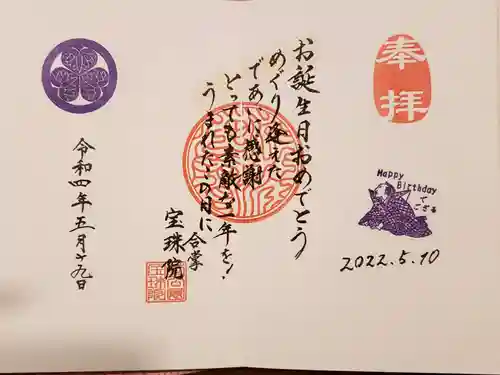 奉拝
Happy
Birthday
で
ござる
2022.5.10
お誕生日おめでとう
めぐり逢えた
であいに感謝
とっても素敵な一年を!
うまれたこの日に
合掌
宝珠院
令和四年五月十九日